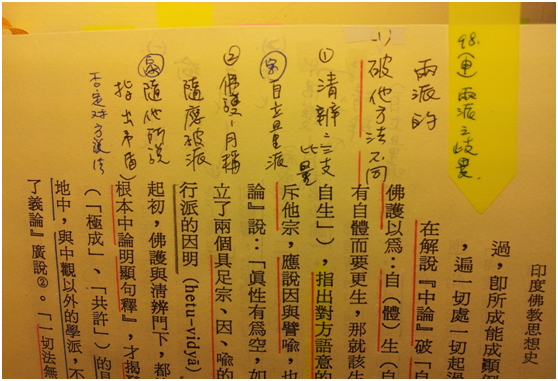 印度佛教思想史
過，即所成能成顛倒
，遍一切處一起過
在解說『中論』破「自
佛護以為：自（體）生（自
有自體而要更生，那就該生
自生」），指出對方語意的
斥他宗，應說因與譬喻，也
論』說：「真性有為空，如
立了兩個具足宗、因、喻的
行派的因明（hetu-vidyā）
起初，佛護與清辨門下，都
根本中論明顯句釋』，才揭
（「極成」、「共許」）的
地中，與中觀以外的學派，不
了義論』廣說②。「一切法無
98. 兩派之歧異
兩派的
破他方法不同
① 清辨：三支比量
自立量派
② 佛護、月稱
隨應破派
隨他所說
指出矛盾
否定對方